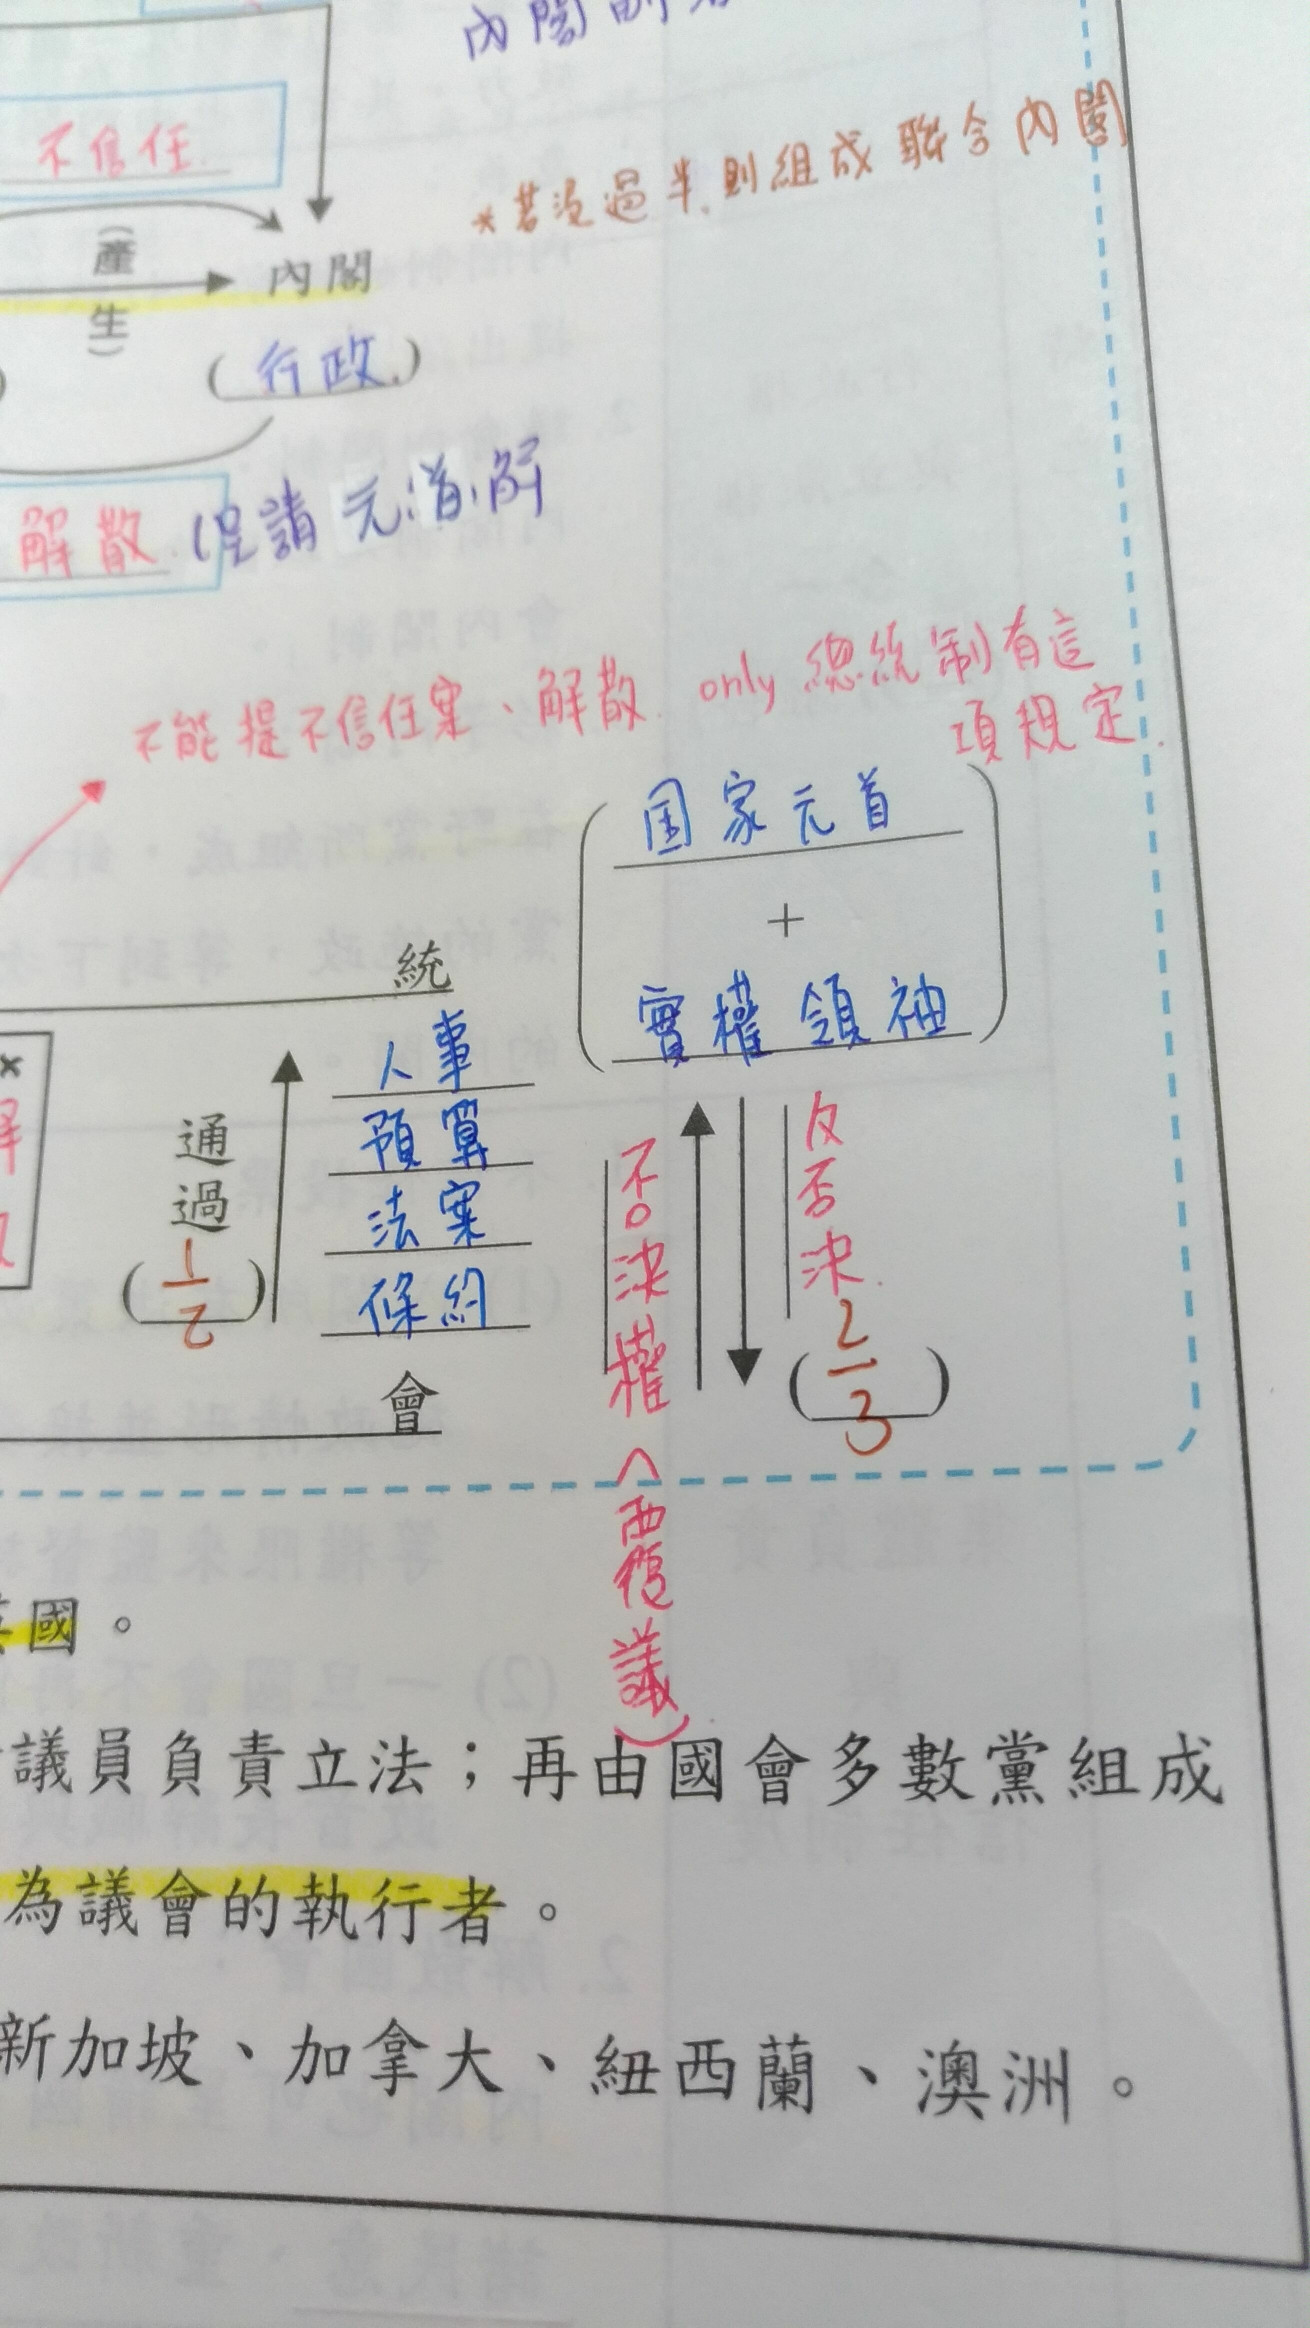 內閣制
不信任
*若沒過半,則組成聯合內閣
(產生)
內閣
(行政)
解散(呈請元首解
不能提不信任案、解散 only 總統制有這
項規定
国家元首
+
實權領袖
統
人事
預算
法案
條約
通過
(1/2)
會
否決權(覆議)
反否決
(2/3)
英國。
議員負責立法；再由國會多數黨組成
為議會的執行者。
新加坡、加拿大、紐西蘭、澳洲。